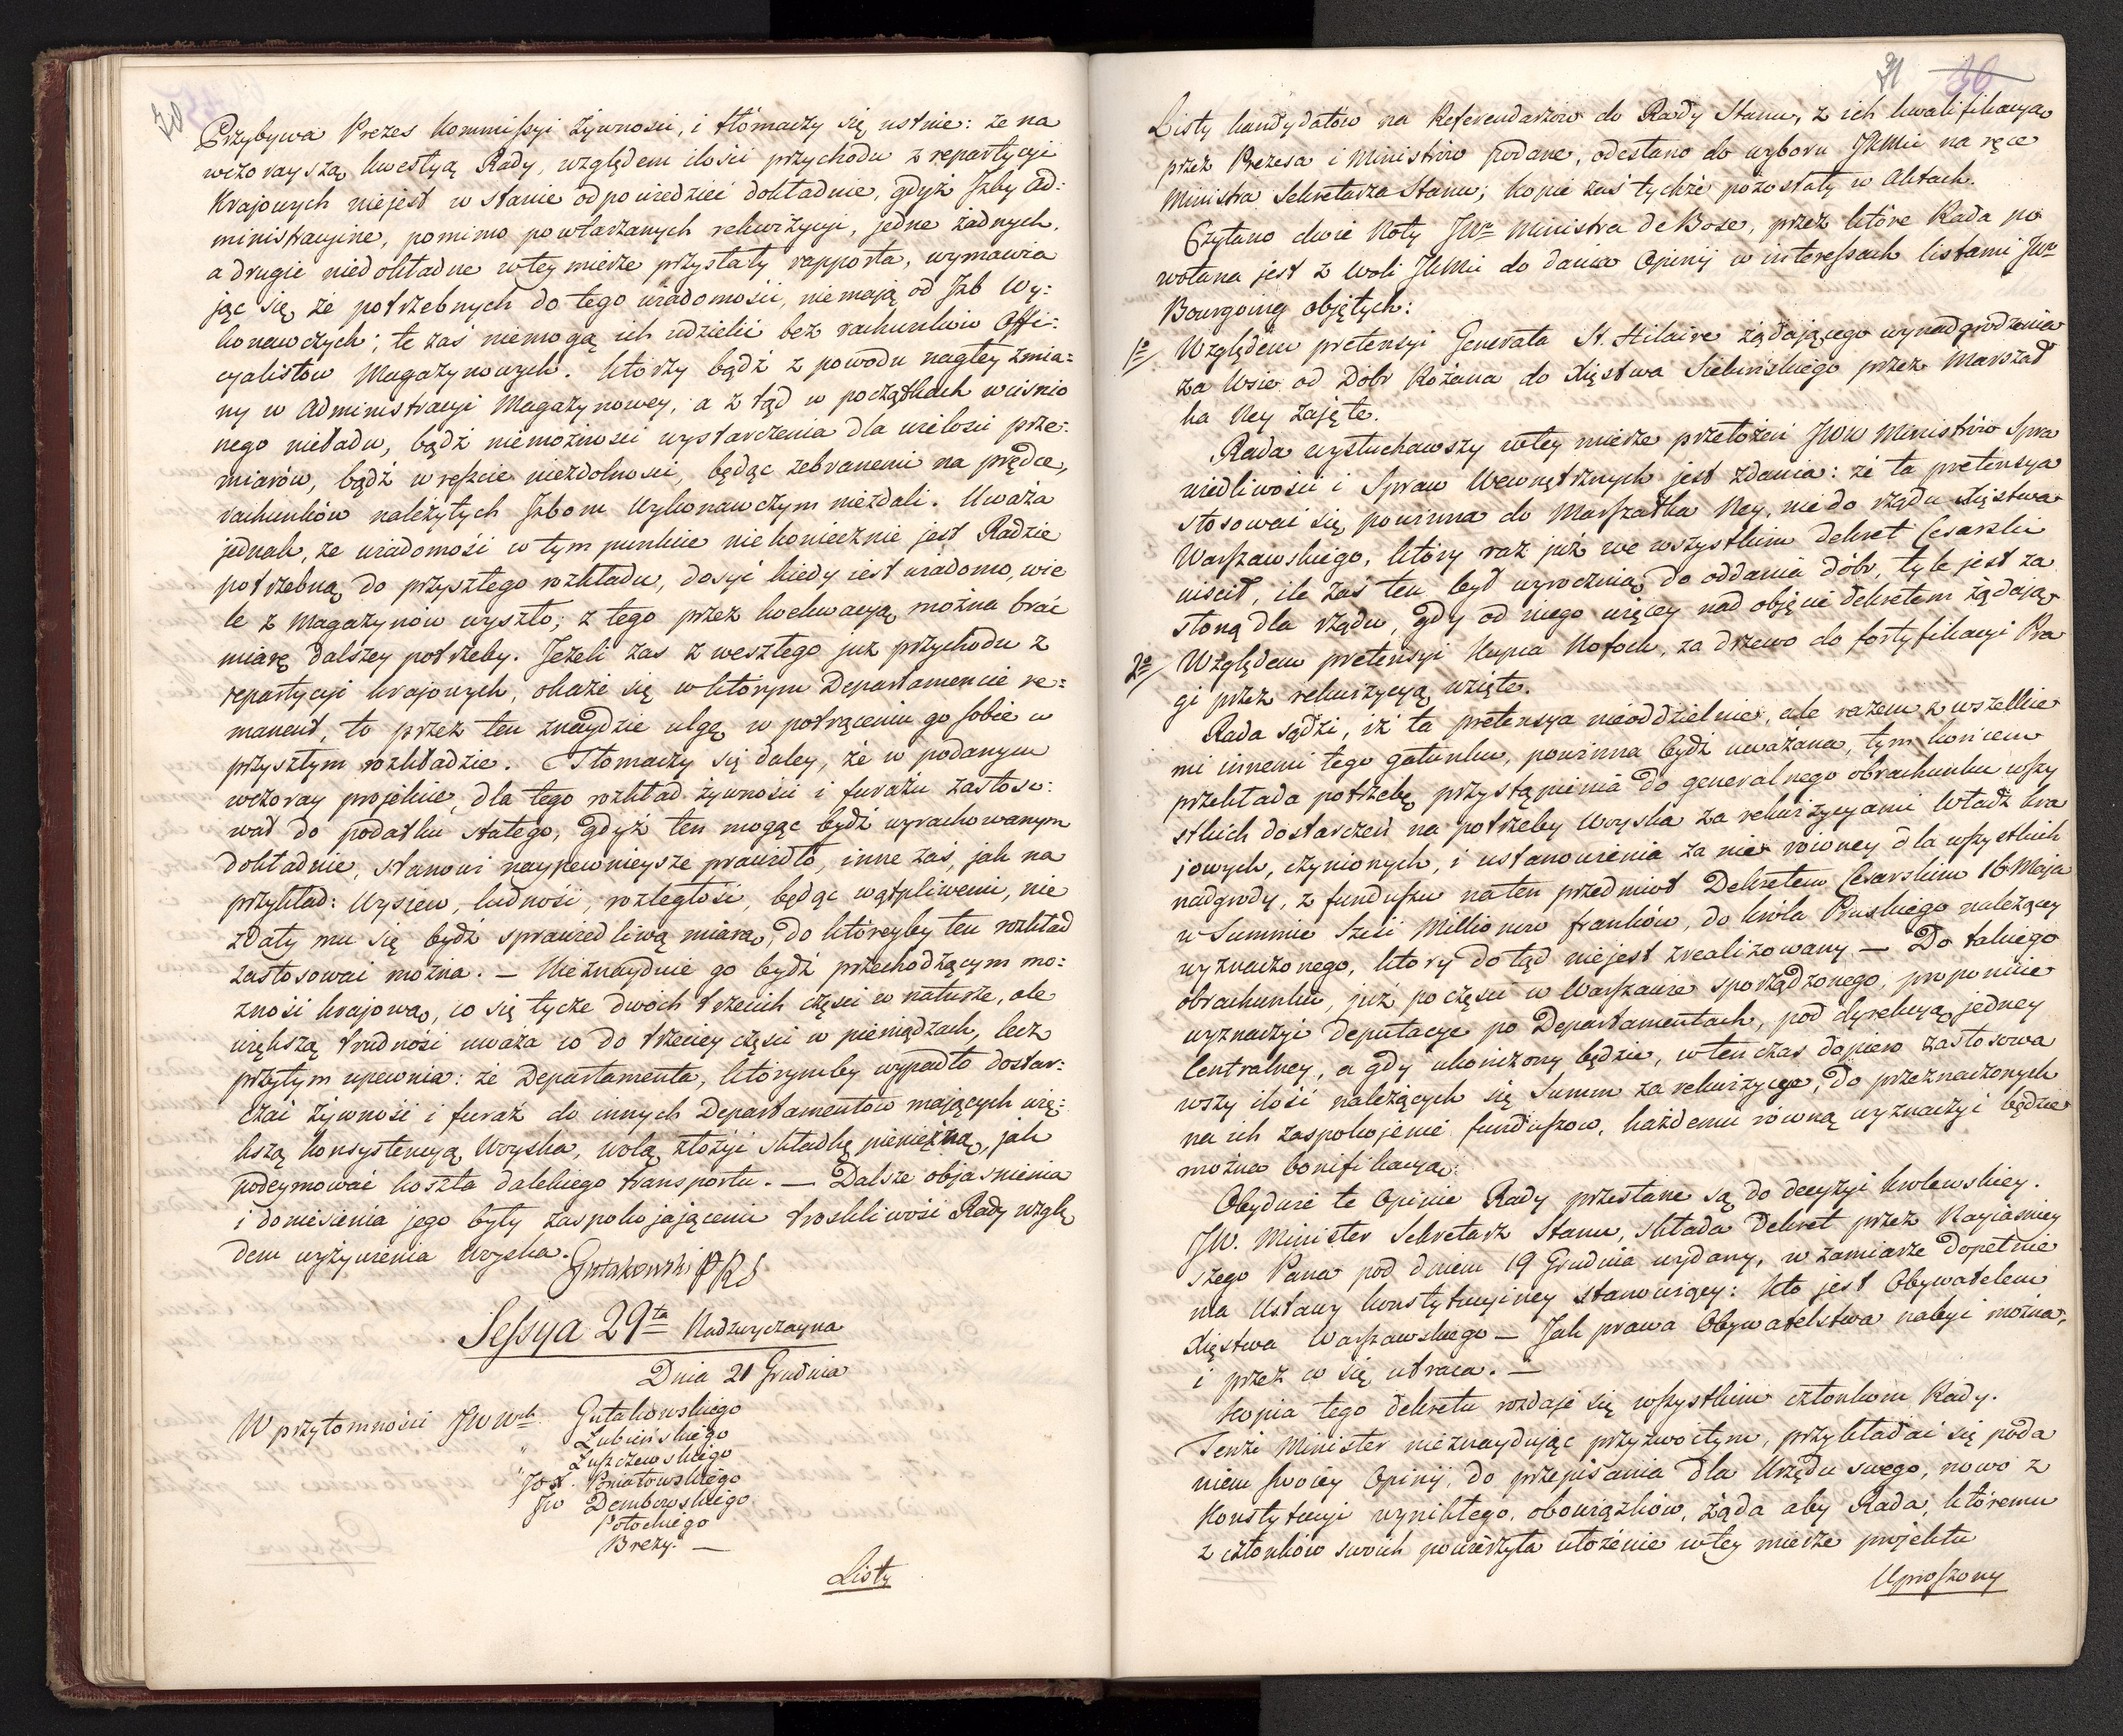 30
Przybywa Prezes Kommissyi Żywności, i tłómaczy się ustnie: że na
wczorayszą kwestyą Rady, względem ilości przychodu z repartycyi
Krajowych niejest w stanie odpowiedzieć dokładnie, gdyż Izby Ad:
ministracyine, pomimo powtarzanych rekwizycyi, jedne żadnych,
a drugie niedokładne wtey mierze przysłały rapporta, wymawia
jąc się, że potrzebnych do tego wiadomości, niemają od Izb Wy:
konawczych; te zaś niemogą ich udzielić bez rachunków Offi:
cyalistów Magazynowych. Którzy bądź z powodu nagłey zmia:
ny w Administracyi Magazynowey, a z tąd w początkach wciśnio
nego nieładu, bądź niemożności wystarczenia dla wielości prze:
miarów, bądź wreszcie niezdolności, będąc zebranemi na prędce,
rachunków należytych Izbom Wykonawczym niezdali. Uważa
jednak, że wiadomość w tym punkcie niekoniecznie jest Radzie
potrzebną do przyszłego rozkładu, dosyć kiedy iest wiadomo, wie
le z Magazynów wyszło; z tego przez koekwacyą można brać
miarę dalszey potrzeby. Jeżeli zas z weszłego już przychodu z
repartycyi krajowych, okaże się w którym Departamencie re:
manent, to przez ten znaydzie ulgę w potrąceniu go sobie w
przyszłym rozkładzie. Tłomaczy się daley, że w podanym
wczoray projekcie, dla tego rozkład żywności i furażu zastoso:
wał do podatku stałego, gdyż ten mogąc bydź wyrachowanym
dokładnie, stanowi naypewnieysze prawidło, inne zaś, jak na
przykład: Wysiew, ludność, rozległość, będąc wątpliwemi, nie
zdały mu się bydź sprawiedliwą miarą, do któreyby ten rozkład
zastosować można. — Nieznayduie go bydź przechodzącym mo:
żność krajową, co się tycze dwóch trzecich części w naturze, ale
większą trudność uważa co do trzeciey części w pieniądzach, lecz
przytym upewnia: że Departamenta, którymby wypadło dostar:
czać żywność i furaż do innych Departamentów mających wię:
kszą konsystencyą Woyska, wolą złożyć składkę pieniężną, jak
podeymować koszta dalekiego transportu. — Dalsze objaśnienia
i doniesienia jego były zaspokojającemi troskliwość Rady wzglę
dem wyżywienia Woyska.
Gutakowski PRS
Sessya 29ta Nadzwyczayna
Dnia 21 Grudnia
W przytomności JWWch Gutakowskiego
" Łubieńskiego
Łuszczewskiego
" JOX. Poniatowskiego
JW Dembowskiego
Potockiego
Brezy. —
Listy
31 36
Listy kandydatów na Referendarzów do Rady Stanu, z ich kwalifikacyą
przez Prezesa i Ministrów podane, odesłano do wyboru JKMci na ręce
Ministra Sekretarza Stanu; kopie zaś tychże pozostały w Aktach.
Czytano dwie Noty JWo Ministra de Bose, przez które Rada po
wołana jest z Woli JKMci do dania Opinij w interessach listami JWo
Bourgoing objętych:
1o/ Względem pretensyi Generała St. Hilaire żądającego wynadgrodzenia
za Wsie od Dóbr Rożana do Xięstwa Siebińskiego przez Marszał
ka Ney zajęte.
Rada wysłuchawszy wtey mierze przełożeń JWW Ministrów Spra
wiedliwości i Spraw Wewnętrznych jest zdania: że ta pretensya
stosować się powinna do Marszałka Ney, nie do rządu Xięstwa
Warszawskiego, który raz już we wszystkim Dekret Cesarski
uiścił, ile zaś ten był wyrocznią do oddania dóbr, tyle jest za
słoną dla rządu, gdy od niego więcey nad objęcie dekretem żądają.
2o/ Względem pretensyi Kupca Kotoch, za drzewo do fortyfikacyi Pra
gi przez rekwizycyą wzięte.
Rada sądzi, iż ta pretensya nieoddzielnie, ale razem z wszelkie
mi innemi tego gatunku, powinna bydź uważana, tym końcem
przekłada potrzebę przystąpienia do generalnego obrachunku wszy
stkich dostarczeń na potrzeby Woyska za rekwizycyami Władz kra
jowych, czynionych, i ustanowienia za nie równey dla wszystkich
nadgrody, z funduszu na ten przedmiot Dekretem Cesarskim 16 Maja
w Summie Sześć Millionów franków, do Króla Pruskiego należącey
wyznaczonego, który dotąd niejest zrealizowany. — Do takiego
obrachunku, już po części w Warszawie sporządzonego, proponuie
wyznaczyć Deputacye po Departamentach, pod dyrekcyą jedney
Centralney, a gdy ukończony będzie, wten czas dopiero zastosowa
wszy ilość należących się Summ za rekwizycye, do przeznaczonych
na ich zaspokojenie funduszow, każdemu równą wyznaczyć będzie
można bonifikacyą.
Obydwie te Opinie Rady przesłane są do decyzyi krolewskiey.
JW. Minister Sekretarz Stanu, składa Dekret przez Nayiaśniey
szego Pana pod dniem 19 Grudnia wydany, w zamiarze dopełnie
nia Ustawy konstytucyiney stanowiącey: Kto jest Obywatelem
Xięstwa Warszawskiego — Jak prawa Obywatelstwa nabyć można,
i przez co się utraca. —
Kopia tego dekretu rozdaje się wszystkim członkom Rady.
Tenże Minister nieznaydując przyzwoitym, przykładać się poda
niem swoiey Opinij, do przepisania dla Urzędu swego, nowo z
Konstytucyi wynikłego, obowiązków, żąda aby Rada, któremu
z członków swoich powierzyła ułożenie wtey mierze projektu
Uproszony